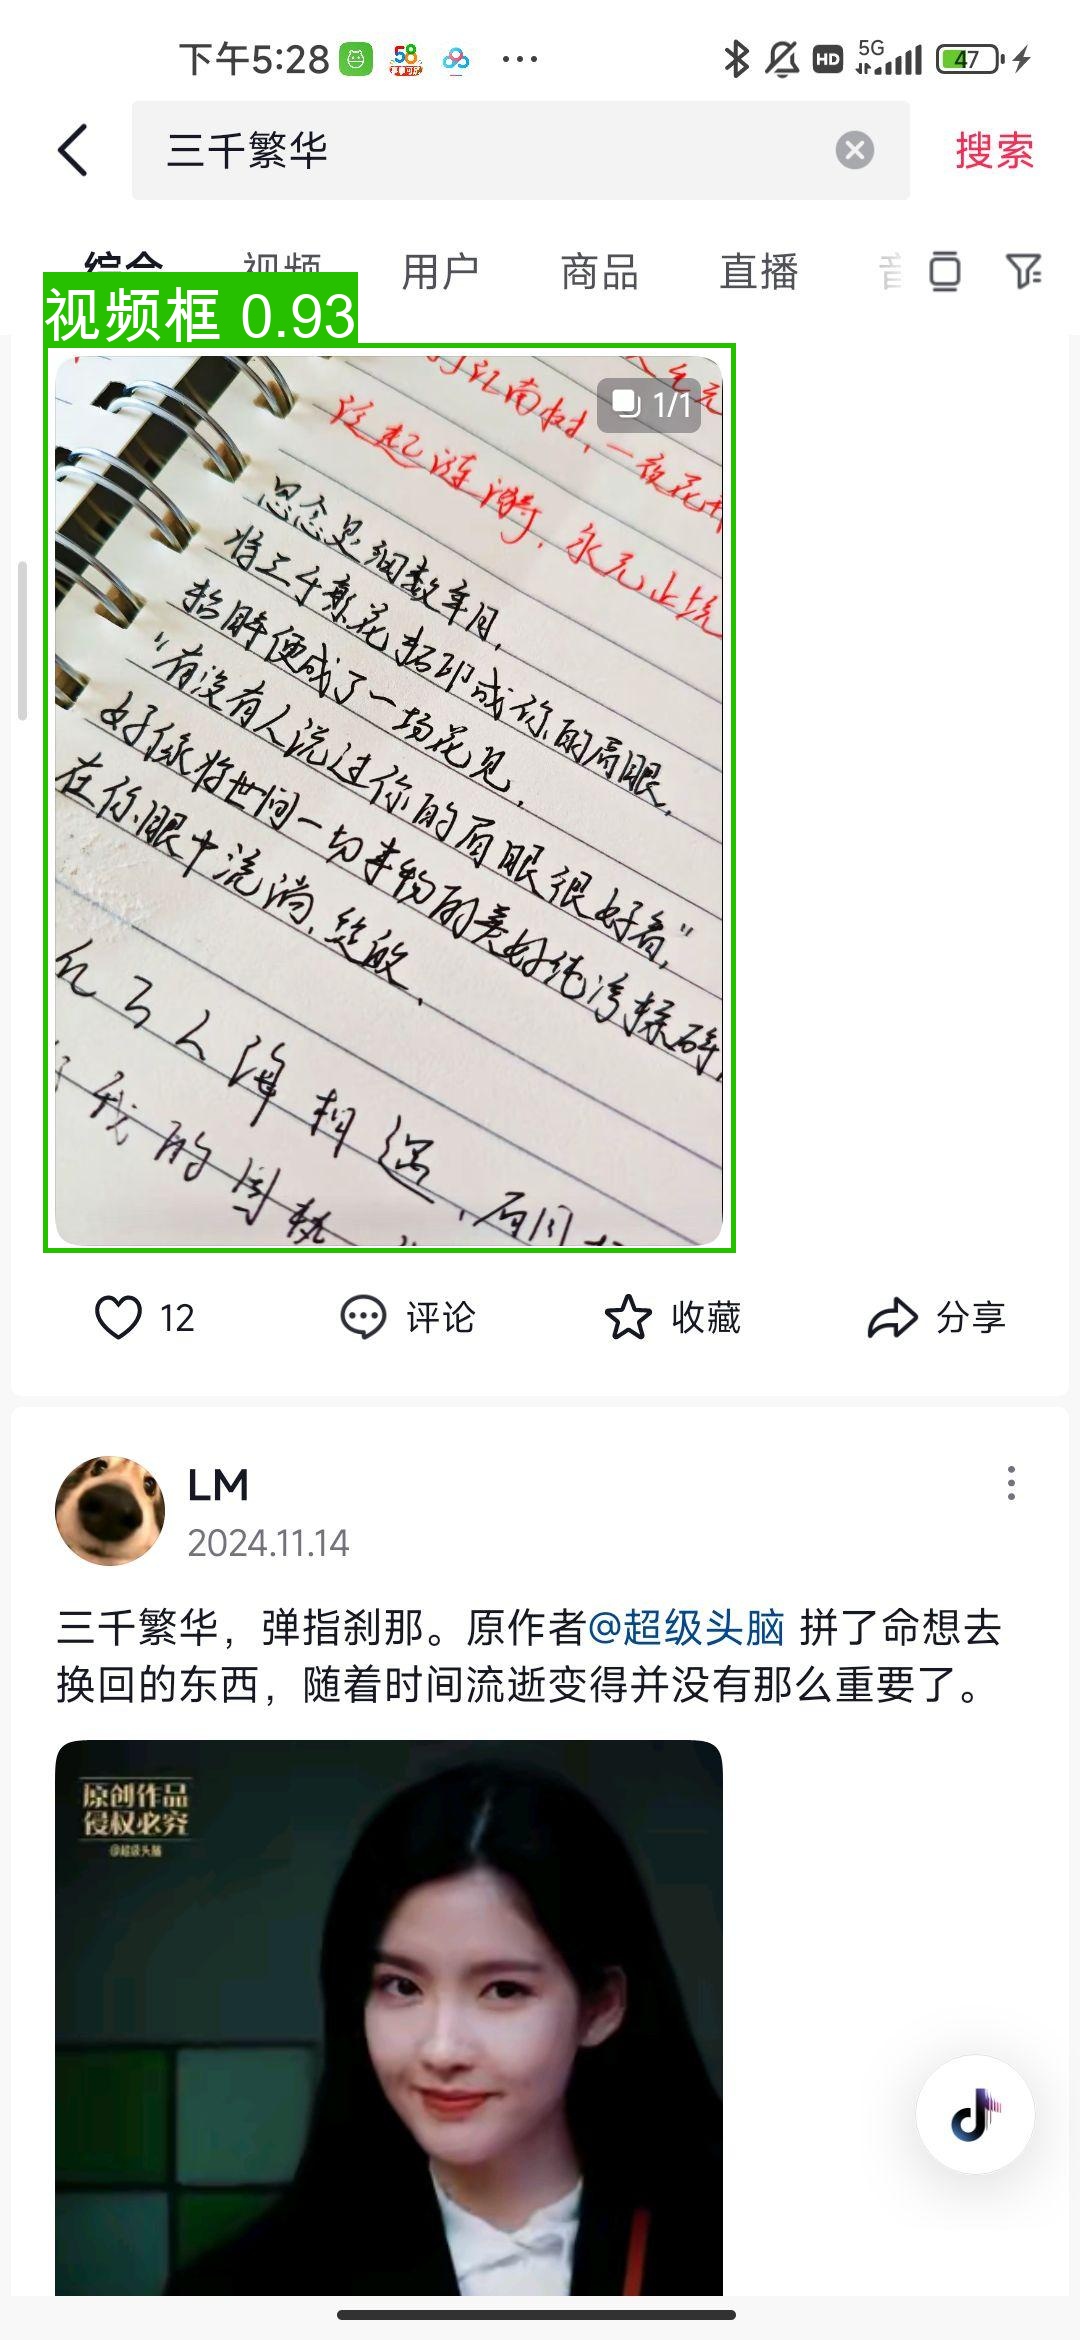 下午5:28
58
HD
5G
47
三千繁华
搜索
综合 视频 用户 商品 直播 音
视频框 0.93
1/1
江南树,一夜花开
泛起涟漪,永无止境
思念是细数年月,
将三千繁花拓印成你的眉眼,
抬眸便成了一场花见,
"有没有人说过你的眉眼很好看,"
好像将世间一切事物的美好纯净揉碎,
在你眼中流淌,绽放、
人海相遇,
我的
12
评论
收藏
分享
LM
2024.11.14
三千繁华，弹指刹那。原作者@超级头脑 拼了命想去
换回的东西，随着时间流逝变得并没有那么重要了。
原创作品
侵权必究
@超级头脑